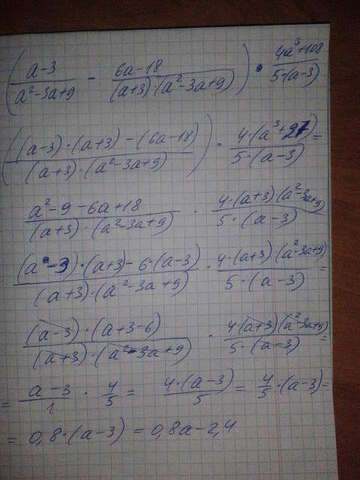 ((a-3)/(a²-3a+9) - (6a-18)/((a+3)(a²-3a+9))) · (4a³+108)/(5·(a-3))
(((a-3)·(a+3)-(6a-18))/((a+3)·(a²-3a+9))) · (4·(a³+27))/(5·(a-3)) =
(a²-9-6a+18)/((a+3)·(a²-3a+9)) · (4·(a+3)(a²-3a+9))/(5·(a-3))
((a-3)·(a+3)-6·(a-3))/((a+3)·(a²-3a+9)) · (4·(a+3)(a²-3a+9))/(5·(a-3)) =
((a-3)·(a+3-6))/((a+3)·(a²-3a+9)) · (4(a+3)(a²-3a+9))/(5·(a-3)) =
= (a-3)/1 · 4/5 = (4·(a-3))/5 = 4/5·(a-3) =
= 0,8·(a-3) = 0,8a-2,4